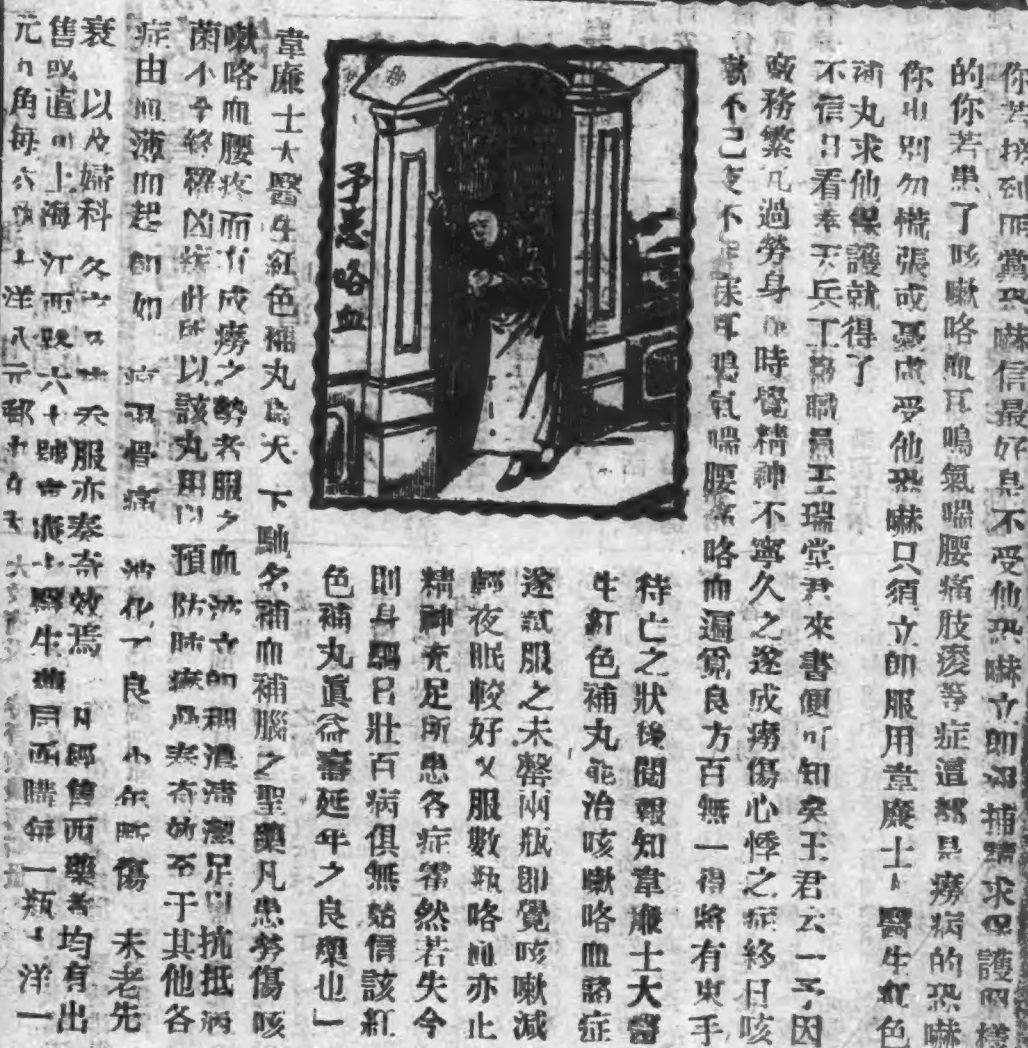 你若接到匪黨恐嚇信最好是不受他恐嚇立即沒捕請求保護同樣
的你若患了咳嗽咯血耳鳴氣喘腰痛肢痠等症這都是癆病的恐嚇
你出別勿慌張或憂慮受他恐嚇只須立即服用韋廉士醫生紅色
補丸求他保護就得了
不信且看奉天兵工廠職員王瑞堂君來書便可知矣王君云「予因
廠務繁冗過勞身體時覺精神不寧久之遂成癆傷心悸之症終日咳
嗽不已夜不能寐耳鳴氣喘腰痛咯血遍覓良方百無一得將有束手
待亡之狀後閱報知韋廉士大醫
生紅色補丸能治咳嗽咯血諸症
遂試服之未罄兩瓶即覺咳嗽減
輕夜眠較好又服數瓶咯血亦止
精神充足所患各症霍然若失今
則身軀日壯百病俱無始信該紅
色補丸眞益壽延年之良藥也」
予患咯血
韋廉士大醫生紅色補丸為天下馳名補血補腦之聖藥凡患勞傷咳
嗽咯血腰疼而有成癆之勢者服之血液立即稠濃清潔足以抗抵病
菌不令終釀凶症此所以該丸用以預防肺癆最奏奇效至于其他各
症由血薄而起即如 骨痛 化不良 少年 傷 未老先
衰 以及婦科各 服亦奏奇效焉 凡經售西藥者均有出
售或直向上海江西路六十號韋廉士醫生藥局函購每一瓶大洋一
元九角每六瓶大洋八元郵力